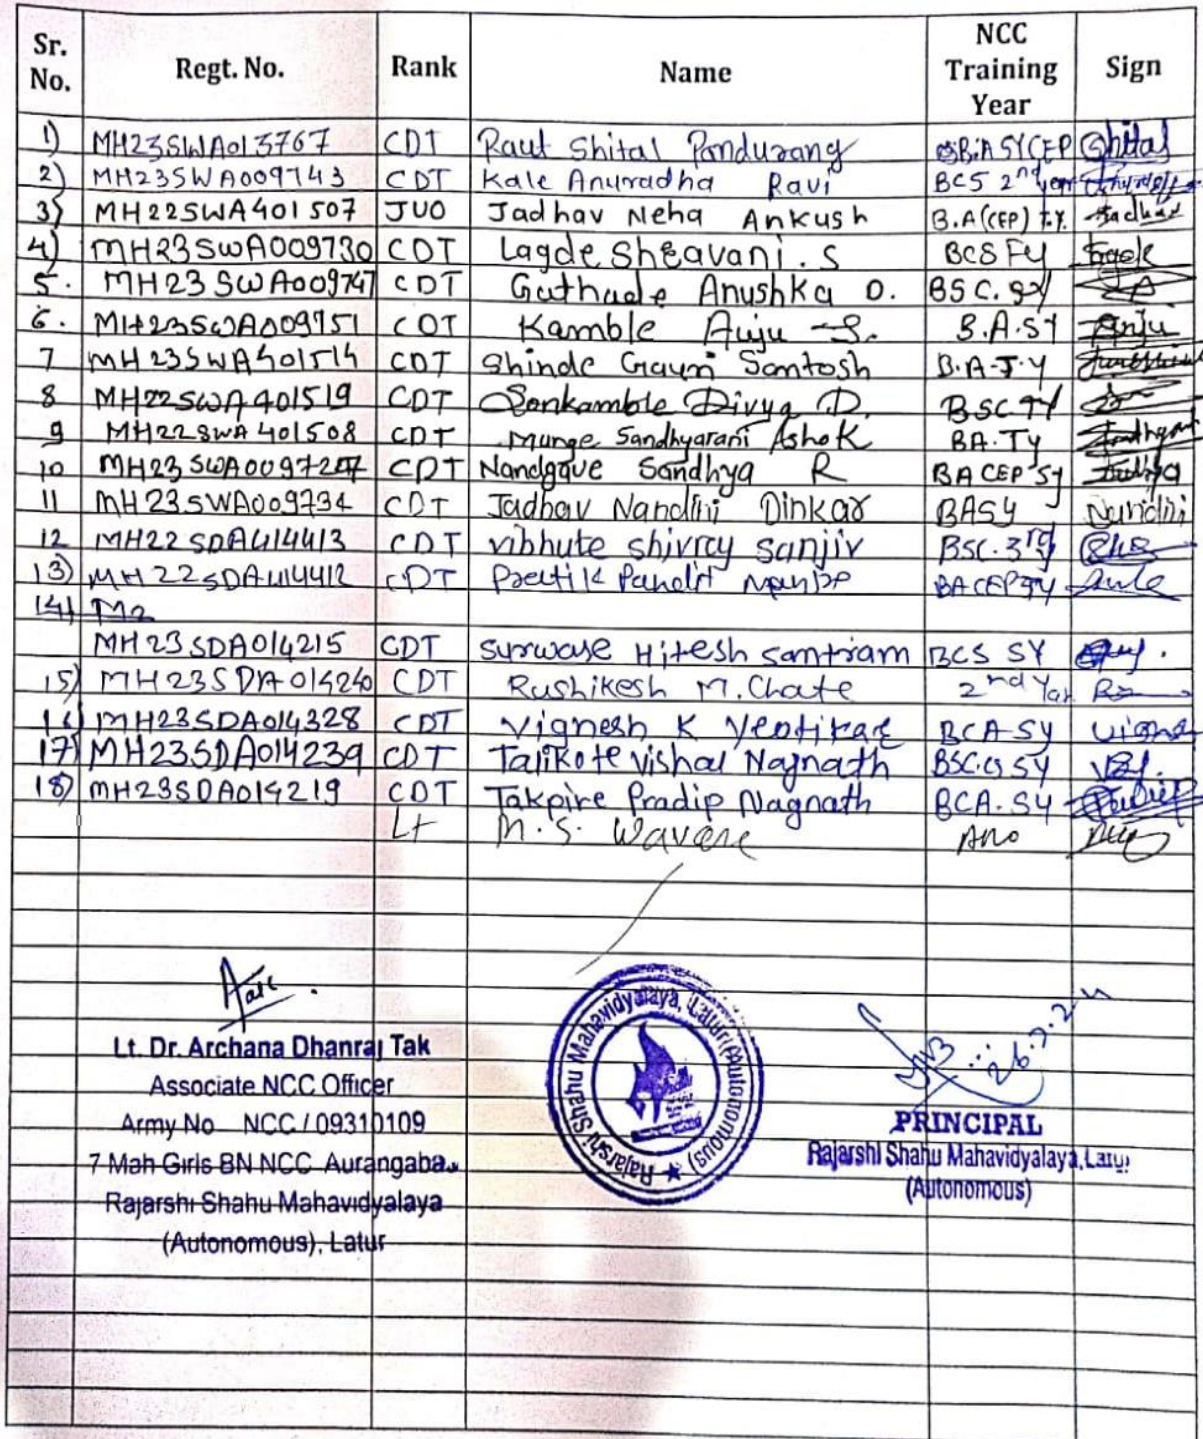 Sr. No. Regt. No. Rank Name NCC Training Year Sign
1) MH23SWA013767 CDT Raut Shital Pandurang B.A SYCEP Shital
2) MH23SWA009743 CDT Kale Anuradha Ravi BCS 2nd year
3) MH22SWA401507 JUO Jadhav Neha Ankush B.A(CEP) T.Y. Jadhav
4) MH23SWA009730 CDT Lagde Sheavani. S BCS FY
5. MH23SWA009747 CDT Guthade Anushka D. BSC. SY
6. MH23SWA009751 CDT Kamble Anju S. B.A.SY Anju
7 MH23SWA401514 CDT Shinde Gauri Santosh B.A-T.Y
8 MH22SWA401519 CDT Sonkamble Divya D. BSC TY
9 MH22SWA401508 CDT Munge Sandhyarani Ashok BA.TY
10 CDT Nandgave Sandhya R BACEP SY
11 MH23SWA009734 CDT Jadhav Nandini Dinkar BASY Nandini
12 MH22SDA414413 CDT vibhute shivraj sanjiv BSC.3rd
13) MH22SDA414412 CDT BACEP TY
14)
MH23SDA014215 CDT Surwase Hitesh Samtram BCS SY
15) MH23SDA014240 CDT Rushikesh M. Chate 2nd Year
16) MH23SDA014328 CDT Vignesh K Yeotikar BCA SY
17) MH23SDA014239 CDT Talikote Vishal Nagnath BSC.CS SY
18) MH23SDA014219 CDT Takpire Pradip Nagnath BCA. SY
Lt M.S. Wavare ANO
Lt. Dr. Archana Dhanraj Tak
Associate NCC Officer
Army No NCC / 09310109
7 Mah Girls BN NCC Aurangaba
Rajarshi Shahu Mahavidyalaya
(Autonomous), Latur
Rajarshi Shahu Mahavidyalaya, Latur (Autonomous)
26.7.24
PRINCIPAL
Rajarshi Shahu Mahavidyalaya, Latur
(Autonomous)